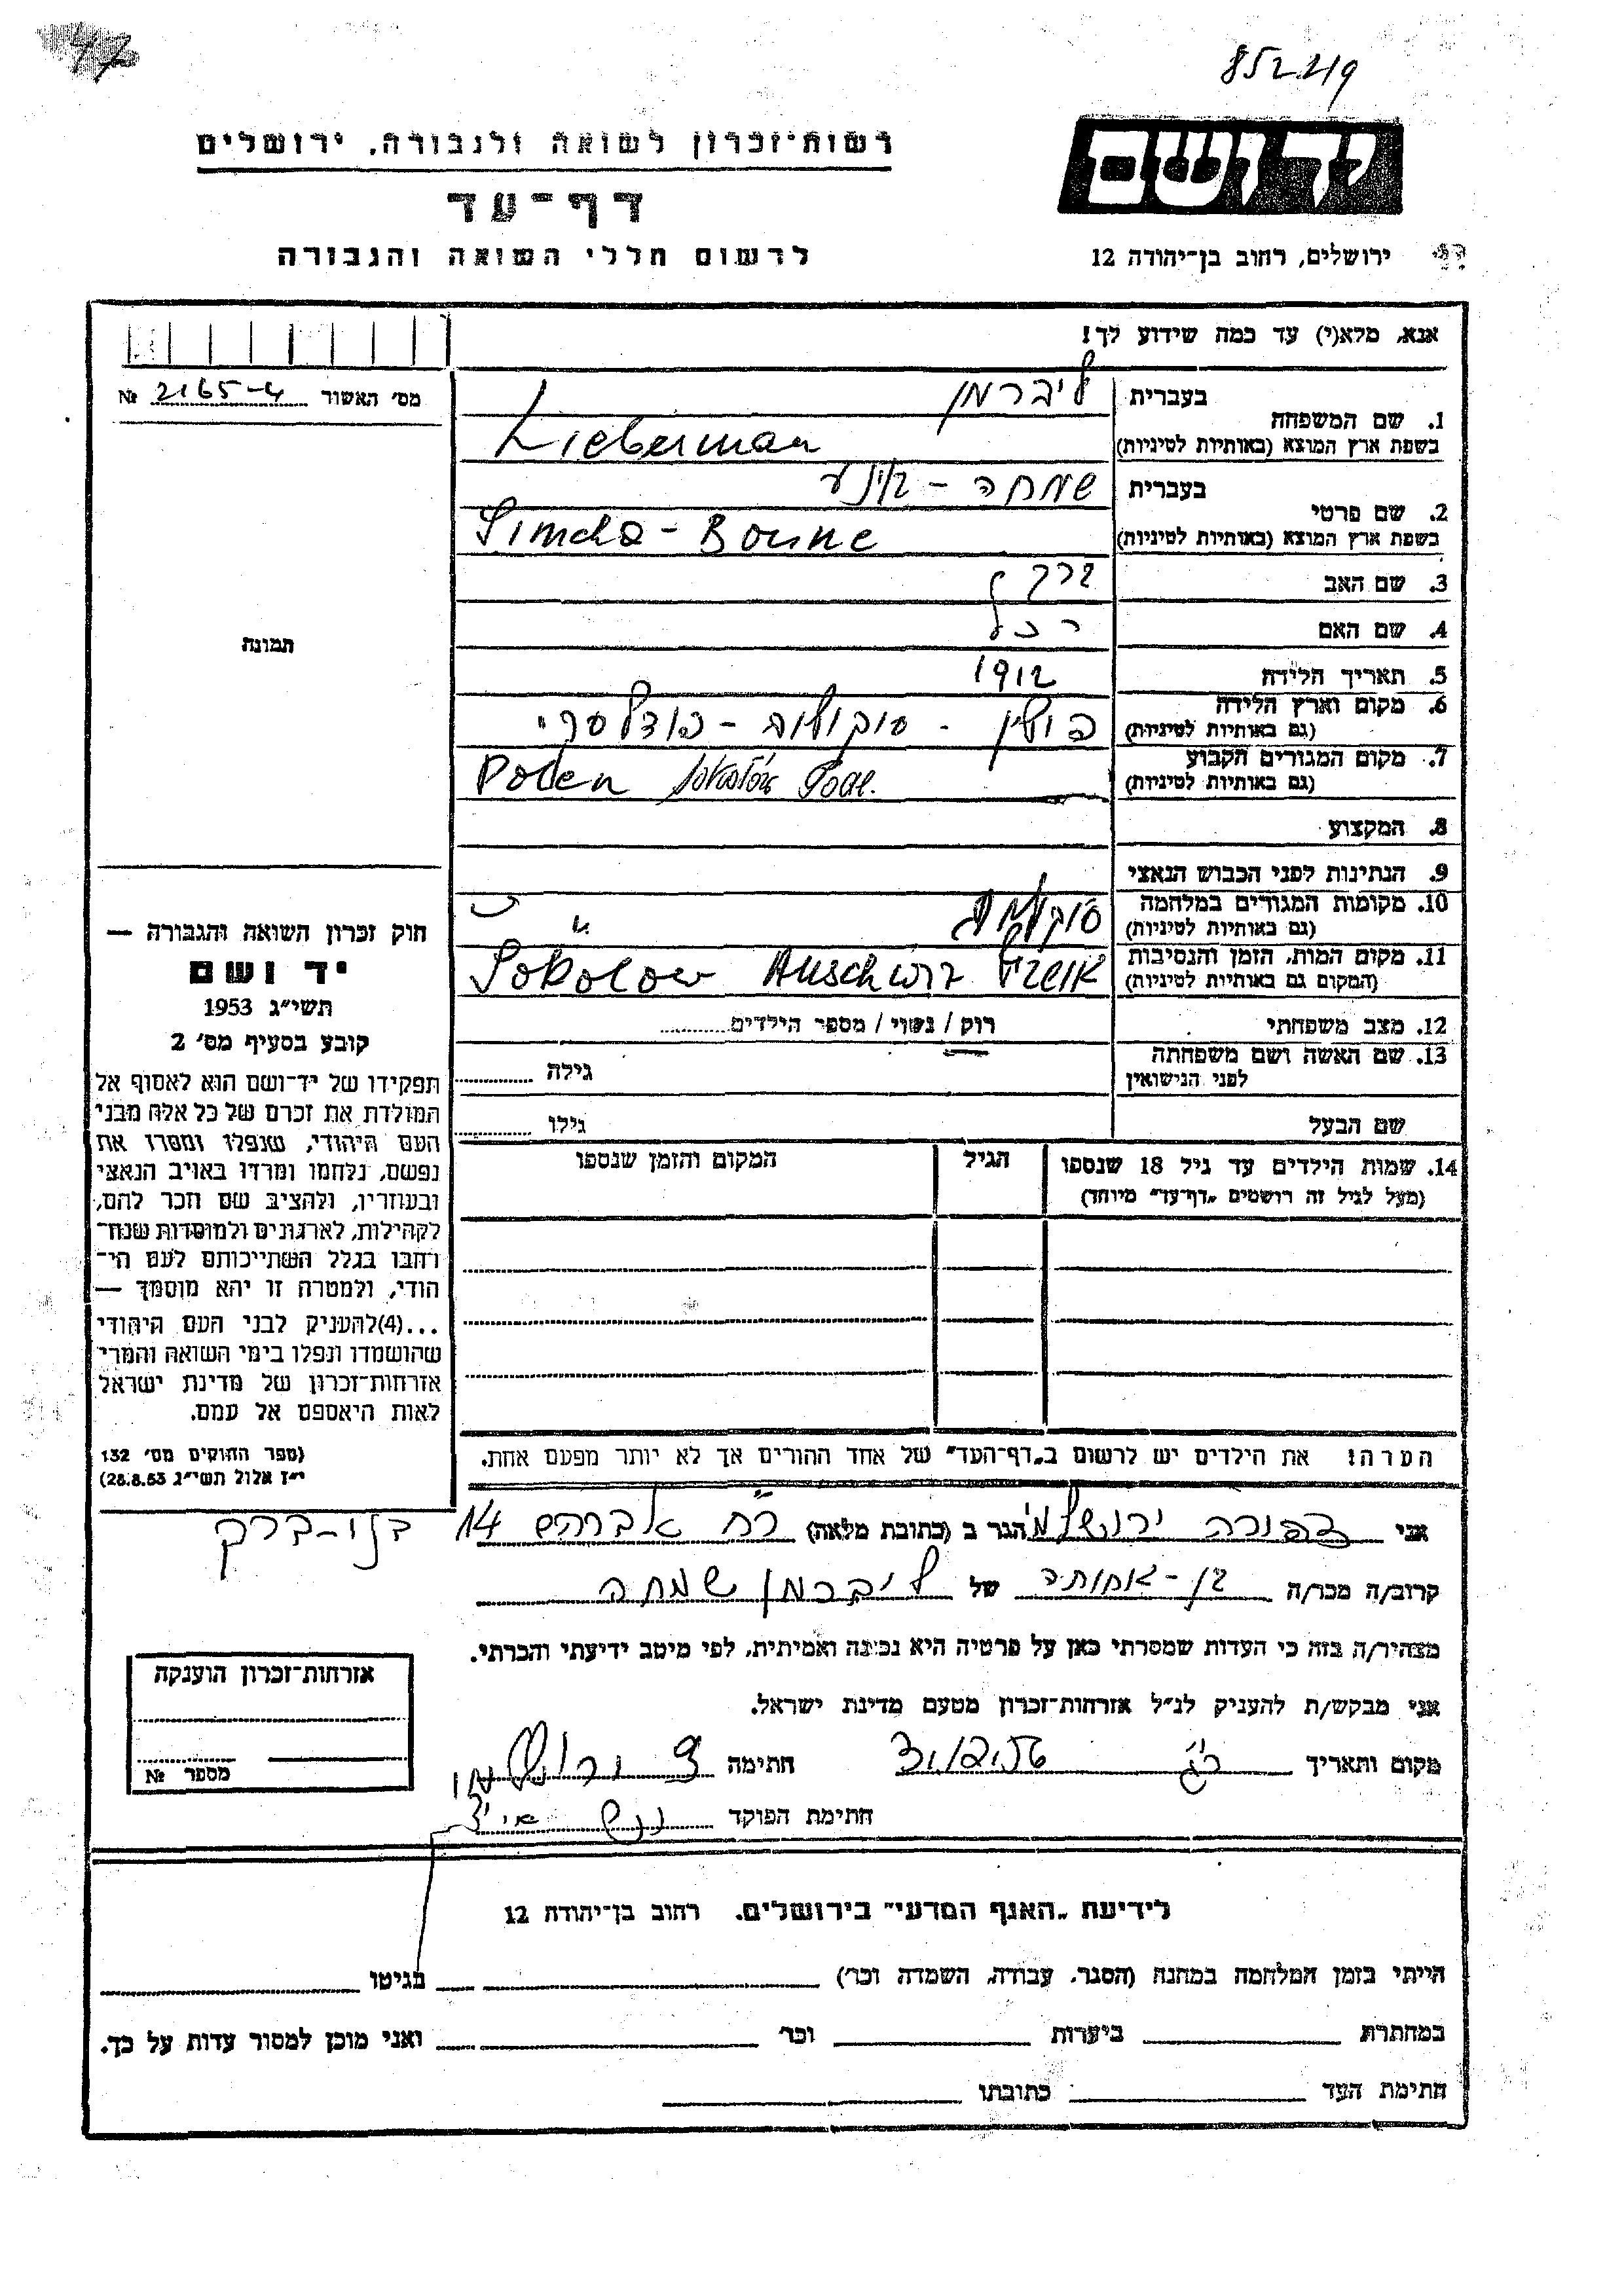 47
852219
רשות־זכרון לשואה ולגבורה, ירושלים
יד ושם
דף־עד
לרשום חללי השואה והגבורה
ירושלים, רחוב בן־יהודה 12
אנא, מלא(י) עד כמה שידוע לך!
מס' האשור 2165-4 №
תמונה
1. שם המשפחה
בעברית ליברמן
בשפת ארץ המוצא (באותיות לטיניות) Lieberman
2. שם פרטי
בעברית שמחה -
בשפת ארץ המוצא (באותיות לטיניות) Simcha -
3. שם האב
4. שם האם רחל
5. תאריך הלידה 1912
6. מקום וארץ הלידה
(גם באותיות לטיניות) פולין - סוקולוב - פודלסקי
7. מקום המגורים הקבוע
(גם באותיות לטיניות) Polen Sokołów Podl.
8. המקצוע
9. הנתינות לפני הכבוש הנאצי
10. מקומות המגורים במלחמה
(גם באותיות לטיניות) סוקולוב
11. מקום המות, הזמן והנסיבות
(המקום גם באותיות לטיניות) Sokolow Auschwitz
12. מצב משפחתי רוק / נשוי / מספר הילדים
13. שם האשה ושם משפחתה
לפני הנישואין גילה
שם הבעל גילו
14. שמות הילדים עד גיל 18 שנספו
(מעל לגיל זה רושמים „דף־עד" מיוחד)
הגיל
המקום והזמן שנספו
הערה: את הילדים יש לרשום ב„דף־העד" של אחד ההורים אך לא יותר מפעם אחת.
חוק זכרון השואה והגבורה —
יד ושם
תשי"ג 1953
קובע בסעיף מס' 2
תפקידו של יד־ושם הוא לאסוף אל
המולדת את זכרם של כל אלה מבני
העם היהודי, שנפלו ומסרו את
נפשם, נלחמו ומרדו באויב הנאצי
ובעוזריו, ולהציב שם וזכר להם,
לקהילות, לארגונים ולמוסדות שנח־
רבו בגלל השתייכותם לעם הי־
הודי, ולמטרה זו יהא מוסמך —
...(4)להעניק לבני העם היהודי
שהושמדו ונפלו בימי השואה והמרי
אזרחות־זכרון של מדינת ישראל
לאות היאספם אל עמם.
(ספר החוקים מס' 132
י"ז אלול תשי"ג 28.8.53)
אני צפורה ירושלמי הגר ב (כתובת מלאה) רח' אברהם 14 בני-ברק
קרוב/ה מכר/ה בן-אחותה של ליברמן שמחה
מצהיר/ה בזה כי העדות שמסרתי כאן על פרטיה היא נכונה ואמיתית, לפי מיטב ידיעתי והכרתי.
אני מבקש/ת להעניק לנ"ל אזרחות־זכרון מטעם מדינת ישראל.
מקום ותאריך חתימה צ ירושלמי
חתימת הפוקד
אזרחות־זכרון הוענקה
מספר №
לידיעת „האגף המדעי" בירושלים, רחוב בן־יהודה 12
הייתי בזמן המלחמה במחנה (הסגר, עבודה, השמדה וכו') בגיטו
במחתרת ביערות וכו' ואני מוכן למסור עדות על כך.
חתימת העד כתובתו